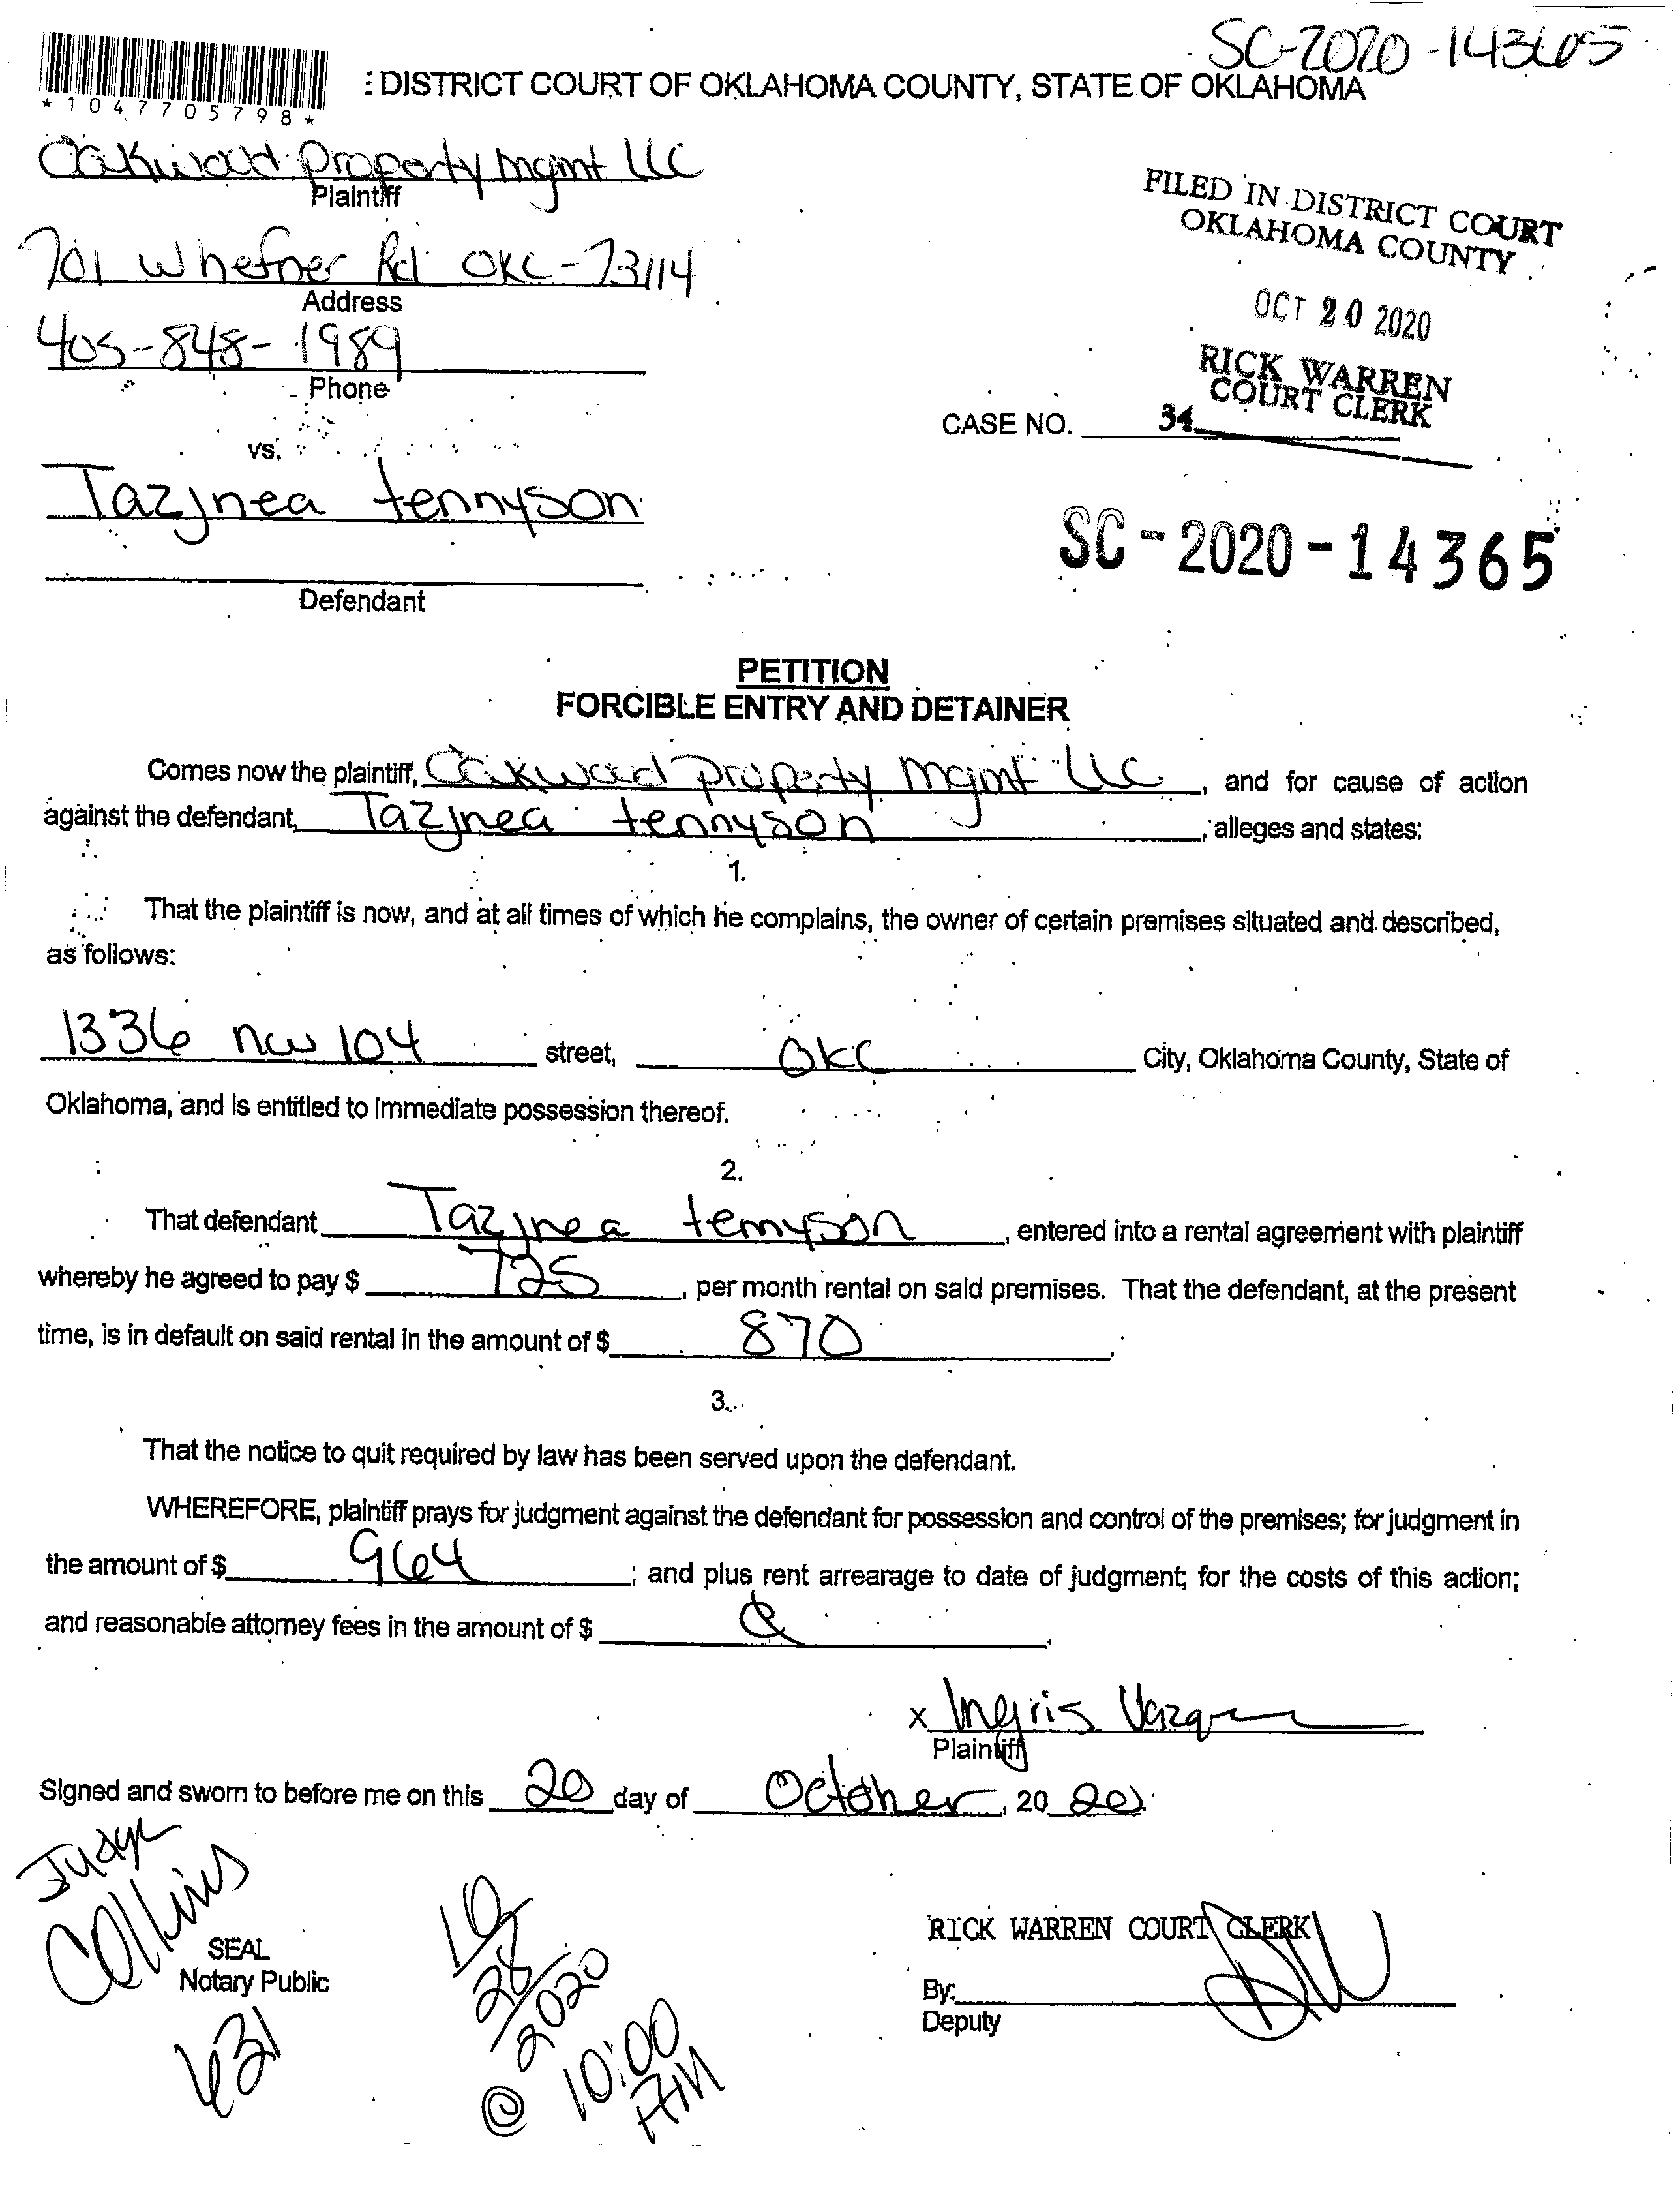 SC-2020-14365
*1047705798*
: DISTRICT COURT OF OKLAHOMA COUNTY, STATE OF OKLAHOMA
Oakwood Property Mgmt LLC
Plaintiff
701 Whefner Rd OKC-73114
Address
405-848-1989
Phone
FILED IN DISTRICT COURT
OKLAHOMA COUNTY
OCT 20 2020
RICK WARREN
COURT CLERK
CASE NO. 34
vs.
Tazjnea tennyson
Defendant
SC-2020-14365
PETITION
FORCIBLE ENTRY AND DETAINER
Comes now the plaintiff, Oakwood Property Mgmt LLC, and for cause of action
against the defendant, Tazjnea tennyson, alleges and states:
1.
That the plaintiff is now, and at all times of which he complains, the owner of certain premises situated and described,
as follows:
1336 nw 104 street, OKC City, Oklahoma County, State of
Oklahoma, and is entitled to immediate possession thereof.
2.
That defendant Tazjnea tennyson, entered into a rental agreement with plaintiff
whereby he agreed to pay $ 725, per month rental on said premises. That the defendant, at the present
time, is in default on said rental in the amount of $ 870.
3.
That the notice to quit required by law has been served upon the defendant.
WHEREFORE, plaintiff prays for judgment against the defendant for possession and control of the premises; for judgment in
the amount of $ 964; and plus rent arrearage to date of judgment; for the costs of this action;
and reasonable attorney fees in the amount of $
x Ingris
Plaintiff
Signed and sworn to before me on this 20 day of October, 20 20.
Judge
Collins
SEAL
Notary Public
431
10/28/2020
@ 10:00
AM
RICK WARREN COURT CLERK
By:
Deputy